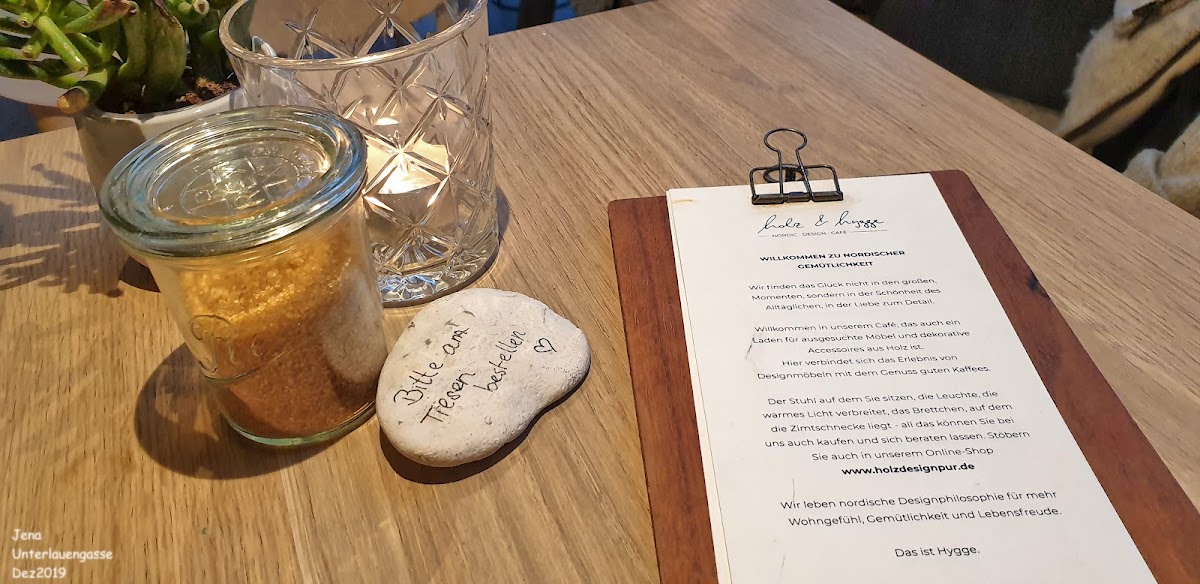 holz & hygge
NORDIC · DESIGN · CAFÉ
WILLKOMMEN ZU NORDISCHER
GEMÜTLICHKEIT
Wir finden das Glück nicht in den großen,
Momenten, sondern in der Schönheit des
Alltäglichen, in der Liebe zum Detail.
Willkommen in unserem Café, das auch ein
Laden für ausgesuchte Möbel und dekorative
Accessoires aus Holz ist.
Hier verbindet sich das Erlebnis von
Designmöbeln mit dem Genuss guten Kaffees.
Der Stuhl auf dem Sie sitzen, die Leuchte, die
warmes Licht verbreitet, das Brettchen, auf dem
die Zimtschnecke liegt - all das können Sie bei
uns auch kaufen und sich beraten lassen. Stöbern
Sie auch in unserem Online-Shop
www.holzdesignpur.de
Wir leben nordische Designphilosophie für mehr
Wohngefühl, Gemütlichkeit und Lebensfreude.
Das ist Hygge.
Bitte am
Tresen
bestellen ♡
Jena
Unterlauengasse
Dez2019